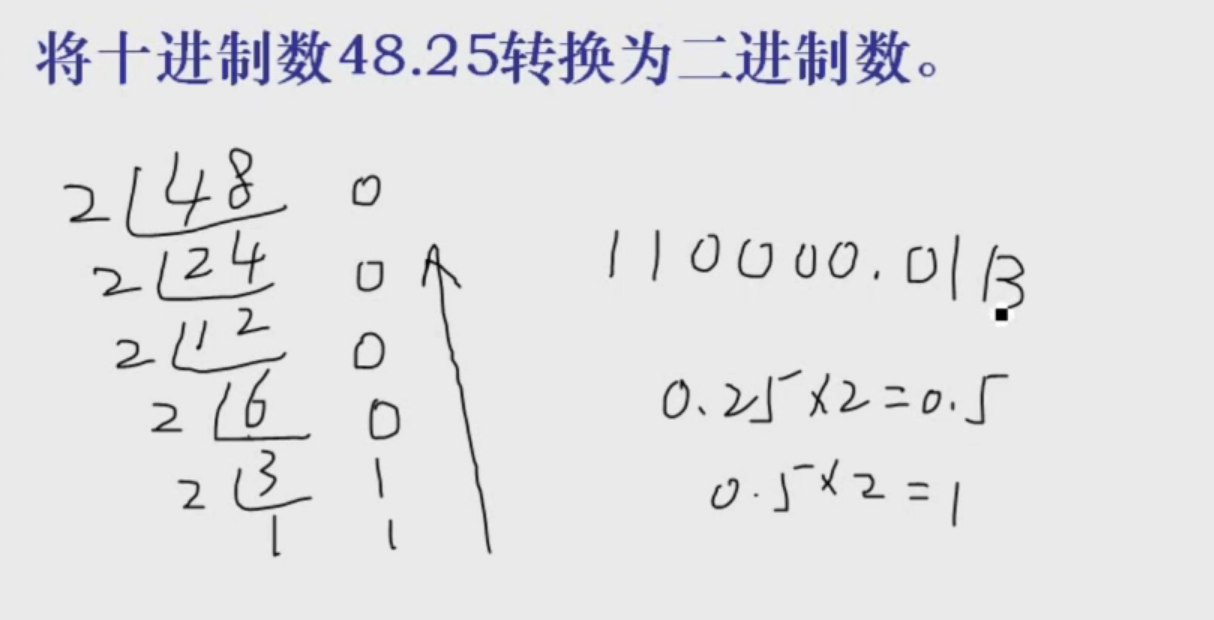 将十进制数48.25转换为二进制数。
2 48 0
2 24 0
2 12 0
2 6 0
2 3 1
1 1
110000.01B
0.25×2=0.5
0.5×2=1